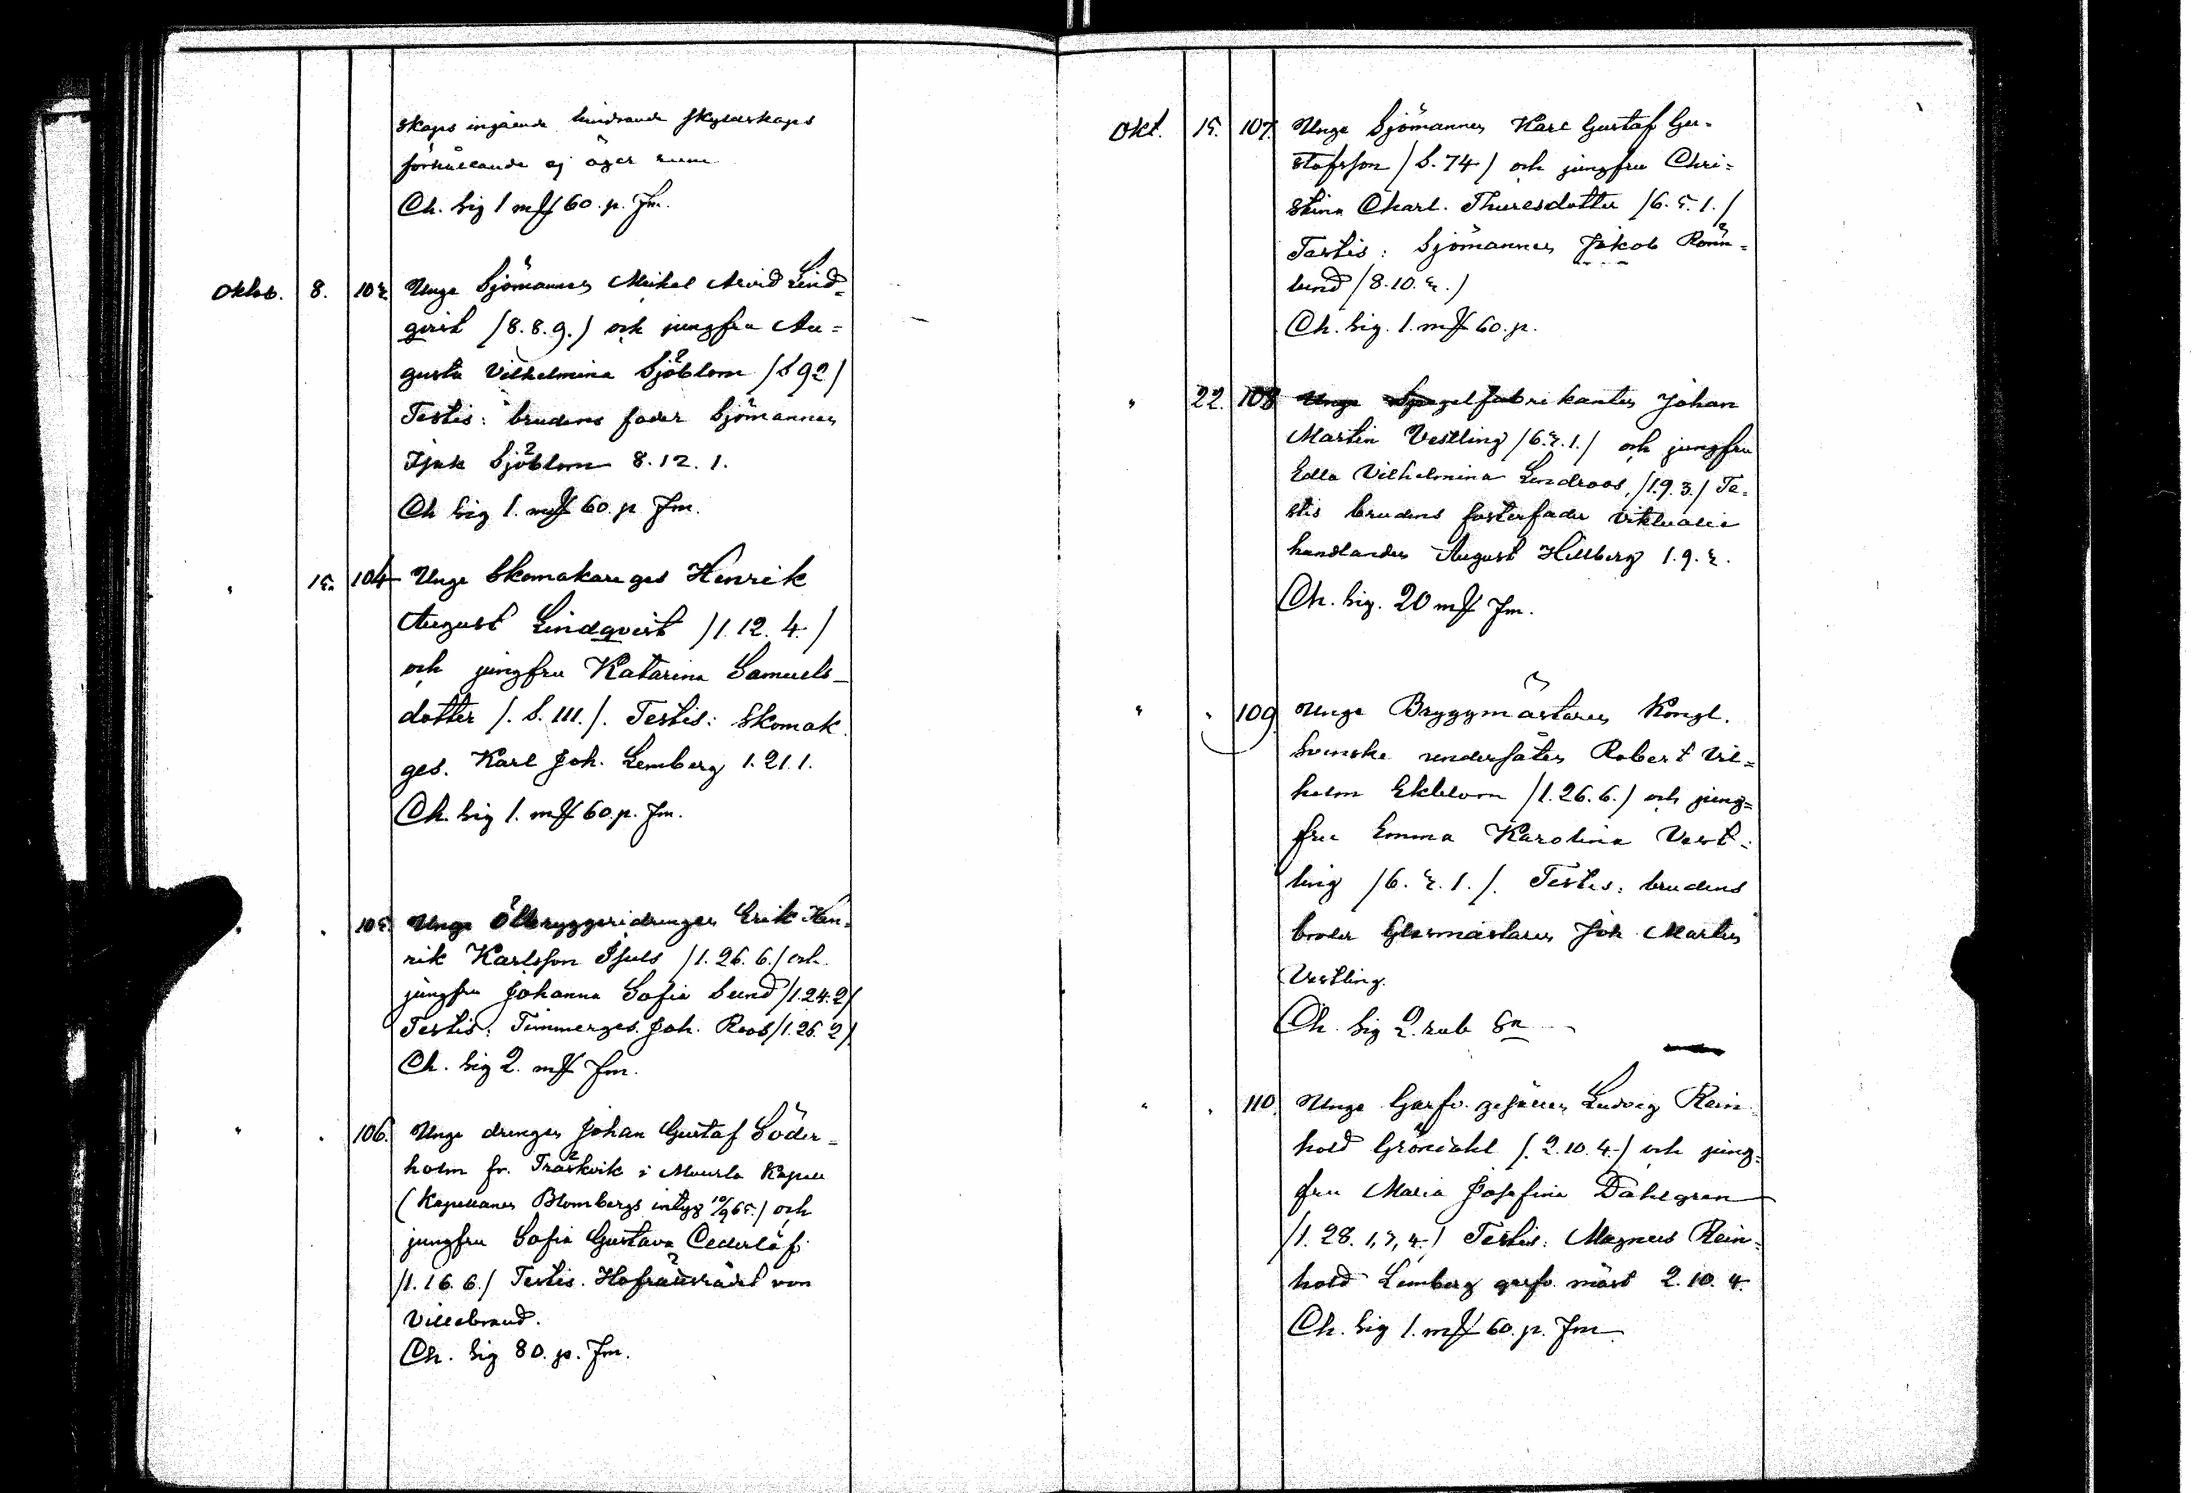 skaps ingående hindrande skyldskaps
förhållande ej äger rum
Ch. Sig 1 mk 60. p. Fm.
Oktob. 8. 103. Unge Sjömannen Mikel Arvid Lind-
qvist /8.8.9./ och jungfru Au=
gusta Vilhelmina Sjöblom /S 92/
Testis: brudens fader Sjömannen
Isak Sjöblom 8.12.1.
Ch Sig 1. mk 60. p Fm.
" 15. 104 Unge Skomakareges Henrik
August Lindqvist /1.12.4./
och jungfru Katarina Samuels-
dotter /. S. 111./. Testis: Skomak.
ges. Karl Joh. Lemberg 1.21.1.
Ch. Sig 1. mk 60. p. Fm.
" . 105. Unge Ölbryggeridrengen Erik Hen-
rik Karlsson /1.26.6./ och
jungfru Johanna Sofia Lund /1.24.2/
Testis: Timmerges. Joh. Roos /1.26.2/.
Ch. Sig 2. mk Fm.
" . 106. Unge drengen Johan Gustaf Söder-
holm fr. Träskvik i Muurla Kapell
(Kapellanen Blombergs intyg 10/9 65.) och
jungfru Sofia Gustava Cederlöf
/1.16.6./ Testis. Hofrättsrådet von
Villebrand.
Ch. Sig 80. p. Fm.
Okt. 15. 107. Unge Sjömannen Karl Gustaf Gu-
stafsson /S. 74/ och jungfru Chri=
stina Charl. Thuresdotter /6.5.1./
Testis: Sjömannen Jakob Rönn-
lund /8.10.2./
Ch. Sig. 1. mk 60. p.
" 22. 108 Unge Spegelfabrikanten Johan
Martin Vestling /6.2.1./ och jungfru
Edla Vilhelmina Lindroos, /1.9.3./ Te-
stis brudens fosterfader viktualie
handlanden August Hillberg 1.9.2.
Ch. Sig. 20 mk Fm.
" " 109 Unge Bryggmästaren Kongl.
Svenske undersåten Robert Vil=
helm Ekblom /1.26.6./ och jung=
fru Emma Karolina Vest-
ling /6.2.1./. Testis: brudens
broder Glasmästaren Joh Martin
Vestling.
Ch. Sig 2. rub Sn
" . 110. Unge Garfv. gesällen Ludvig Rein
hold Gröndahl /.2.10.4./ och jung=
fru Maria Josefina Dahlgren
/1.28.1,3,4./ Testis: Magnus Rein=
hold Lemberg garfv. mäst 2.10.4.
Ch. Sig 1. mk 60. p. Fm